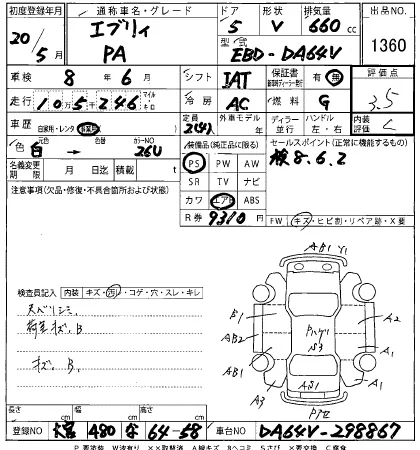 初度登録年月 通称車名・グレード ドア 形状 排気量 出品NO.
20/5月 エブリィ PA 5 V 660cc 1360
型式 EBD-DA64V
車検 8年6月 シフト IAT 保証書 有・無 評価点 3.5
走行 10万5千246 マイル キロ 冷房 AC 燃料 G 内装評価 C
車歴 自家用・レンタ・事業用 定員 2(4)人 外車モデル 年 ディーラー・並行 ハンドル 左・右
色 白 → 色替 カラーNO 26U
名義変更期限 月 日迄 積載 t
装備品(純正品に限る)
PS PW AW
SR TV ナビ
カワ エアB ABS
R券 9310円
セールスポイント(正常に機能するもの)
検8.6.2
注意事項(欠品・修復・不具合箇所および状態)
FW キズ・ヒビ割・リペア跡・X要
検査員記入 内装 キズ・汚・コゲ・穴・スレ・キレ
天ベリシミ
荷室キズ、B
キズ、B
AB1 Y1
B1 A2
AB2
AB1 A1
A3 AS1 A1
長さ cm 幅 cm 高さ cm
登録NO 480 な 64-58 車台NO DA64V-298867
P.要塗装 W波有り ××取替済 A線キズ Bヘコミ Sさび ×要交換 C腐食